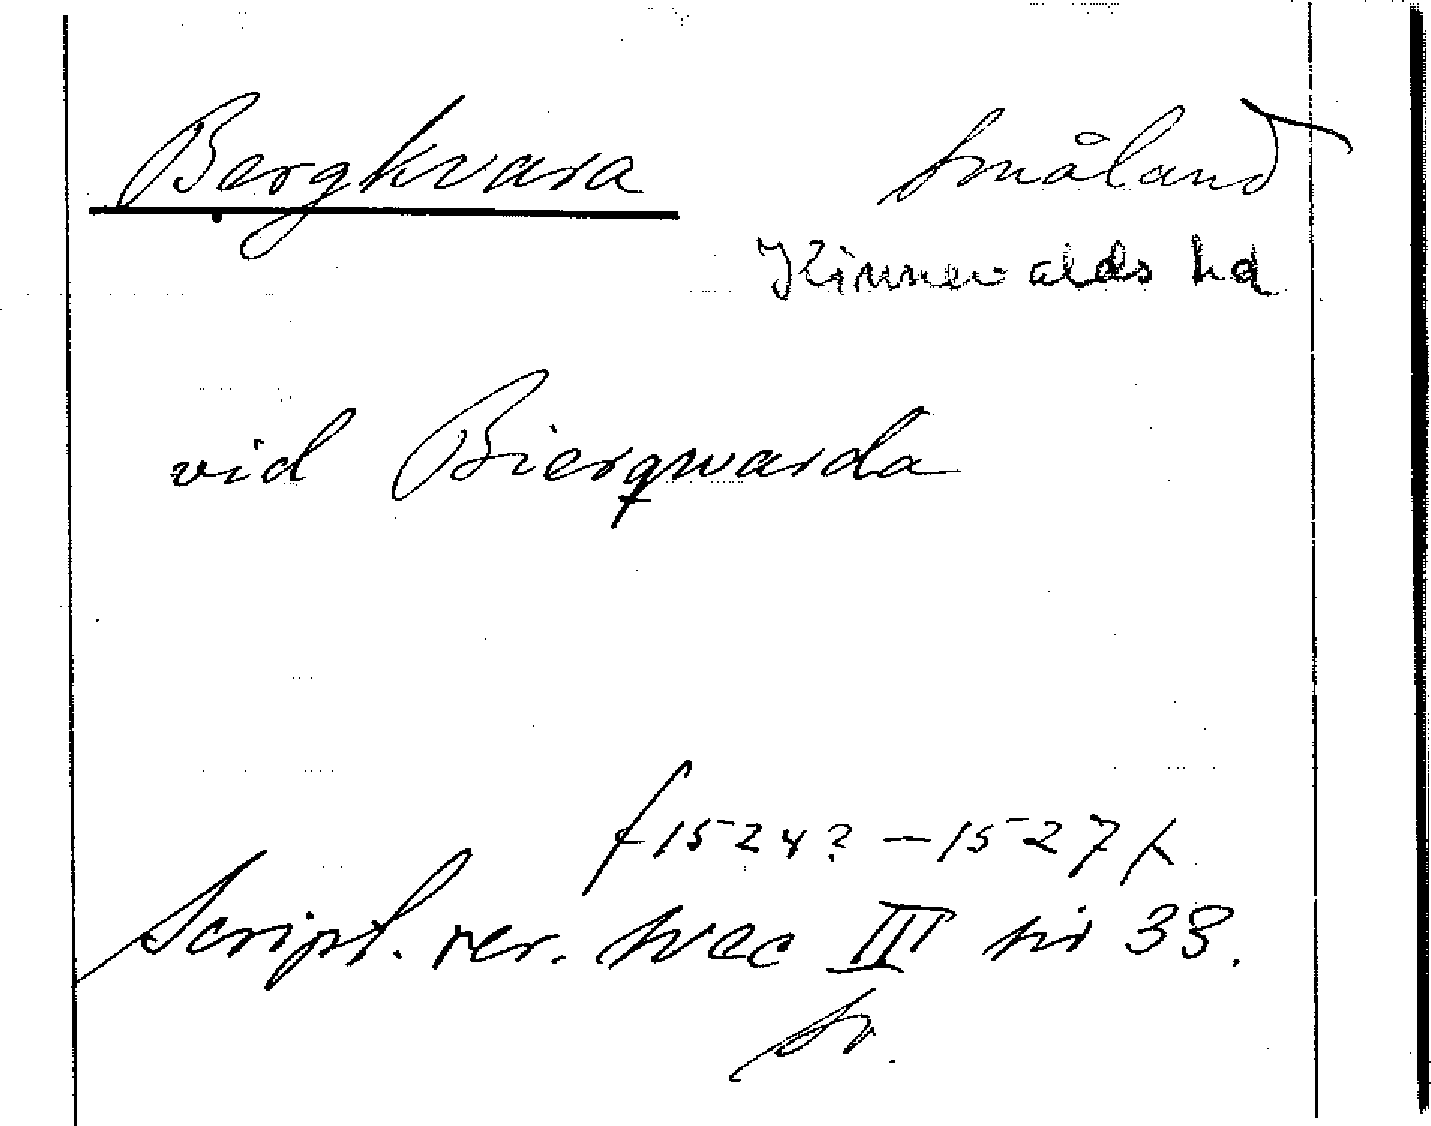 Bergkvara Småland
Kinnevalds hd
vid Bierqwarda
(1524? - 1527)
Script. rer. svec III sid 33.
sv.